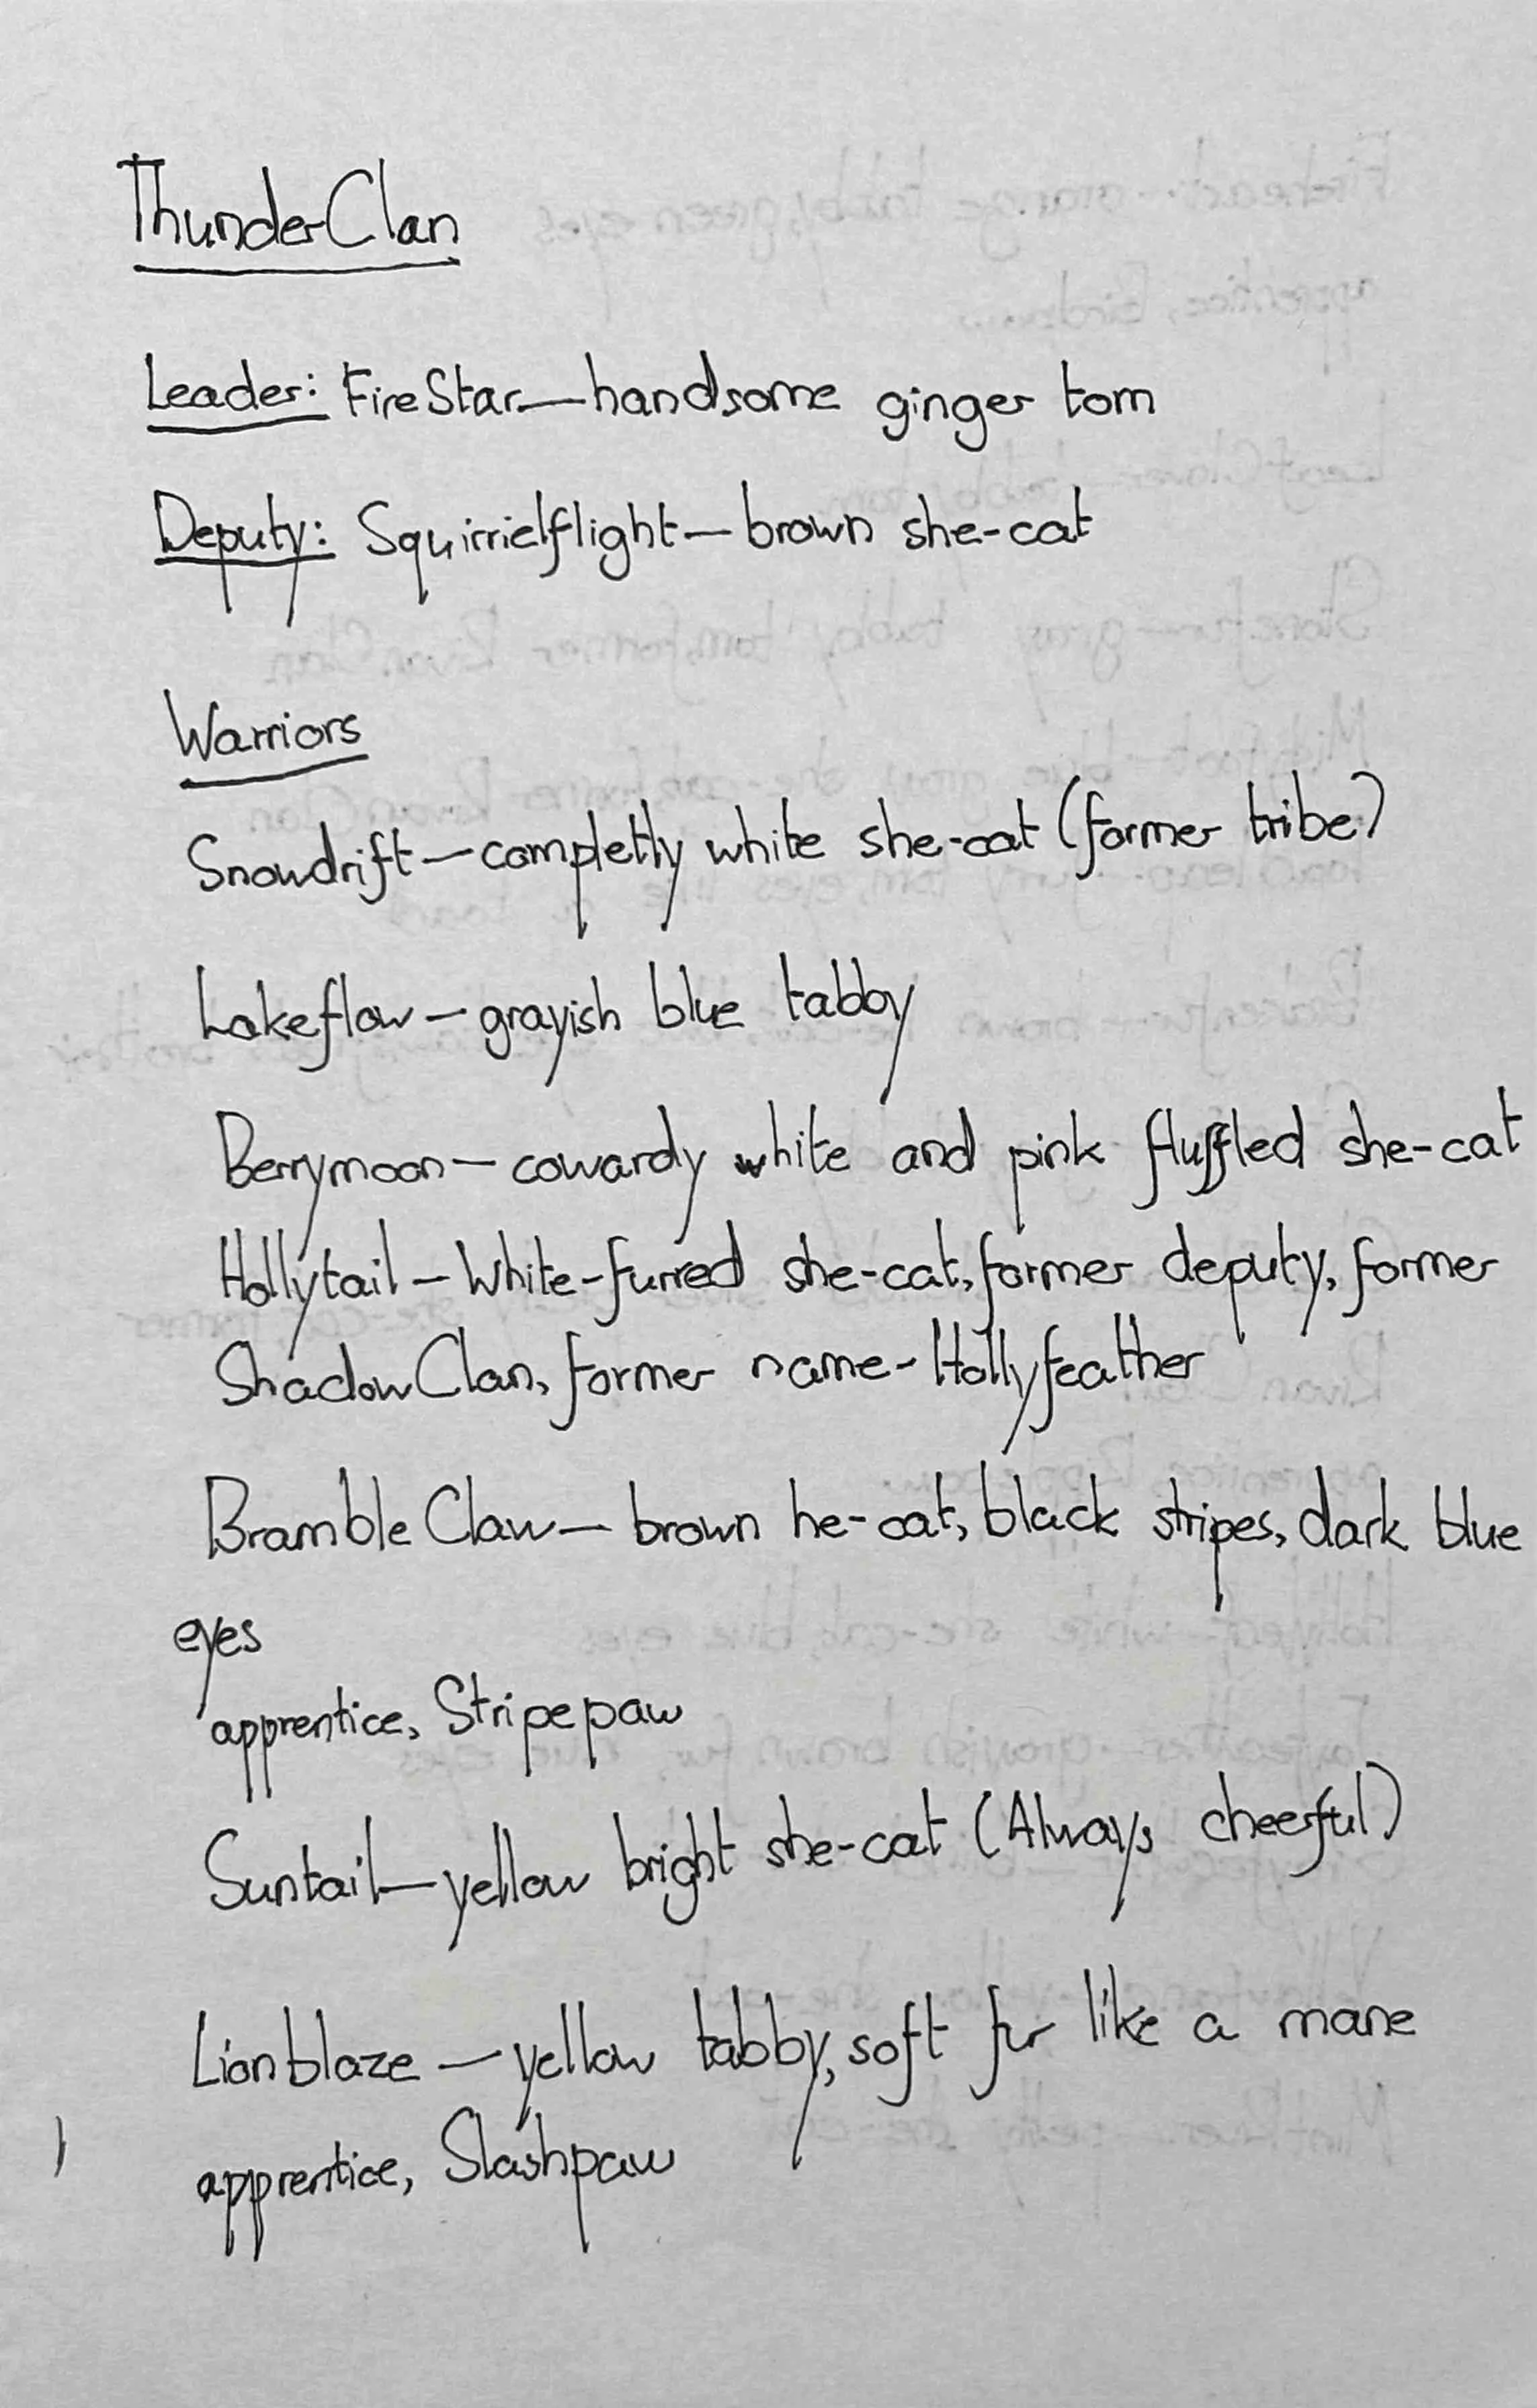 ThunderClan
Leader: FireStar—handsome ginger tom
Deputy: Squirrielflight—brown she-cat
Warriors
Snowdrift—completly white she-cat (former tribe)
Lakeflow—grayish blue tabby
Berrymoon—cowardy white and pink fluffled she-cat
Hollytail—White-furred she-cat, former deputy, former
ShadowClan, former name-Hollyfeather
BrambleClaw—brown he-cat, black stripes, dark blue
eyes
apprentice, Stripepaw
Suntail—yellow bright she-cat (Always cheerful)
Lionblaze—yellow tabby, soft fur like a mane
apprentice, Slashpaw